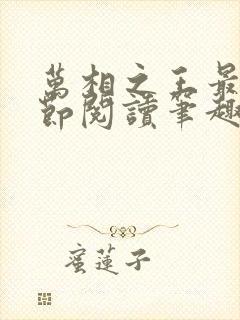 萬相之王最
節閱讀筆趣
蜜蓮子